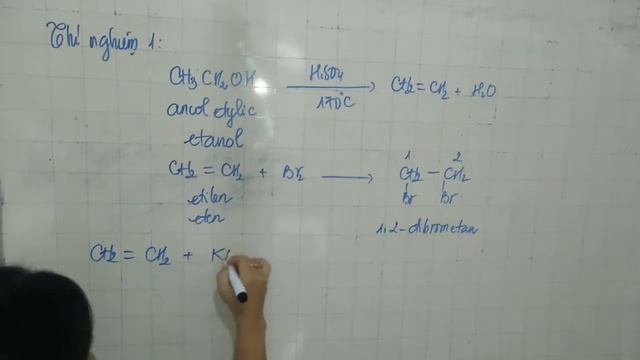 Thí nghiệm 1:
CH3CH2OH H2SO4 170°C CH2=CH2 + H2O
ancol etylic
etanol
CH2 = CH2 + Br2 → CH2 – CH2
1 2
Br Br
etilen
eten
1,2-đibrometan
CH2 = CH2 + K